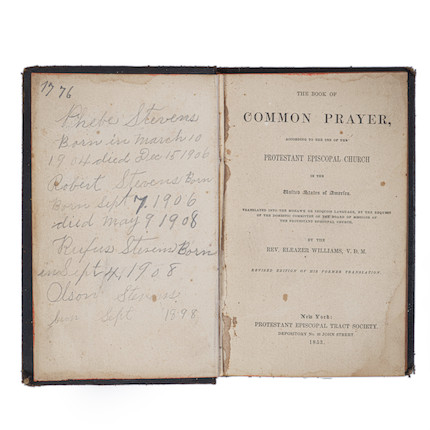 1776
Phebe Stevens
Born in March 10
1904 died Dec 15 1906
Robert Stevens Born
Born Sept 7, 1906
died may 9 1908
Rufus Stevens Born
in Sept 4, 1908
Olson Stevens
Sept 1898
THE BOOK OF
COMMON PRAYER,
ACCORDING TO THE USE OF THE
PROTESTANT EPISCOPAL CHURCH
IN THE
United States of America.
TRANSLATED INTO THE MOHAWK OR IROQUOIS LANGUAGE, BY THE REQUEST
OF THE DOMESTIC COMMITTEE OF THE BOARD OF MISSIONS OF
THE PROTESTANT EPISCOPAL CHURCH.
BY THE
REV. ELEAZER WILLIAMS, V. D. M.
REVISED EDITION OF HIS FORMER TRANSLATION.
New York:
PROTESTANT EPISCOPAL TRACT SOCIETY.
DEPOSITORY No. 20 JOHN STREET
1853.